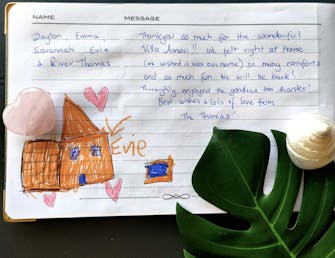 NAME MESSAGE
Dayton, Emma, Thankyou so much for the wonderful
Savannah Evie Villa Amavi!! We felt right at home
& River Thomas (we wished it was our home) so many comforts
and so much fun. We will be back!
Thoroughly enjoyed the goodies too thanks!
Best wishes + lots of love from
The Thomas'
Evie